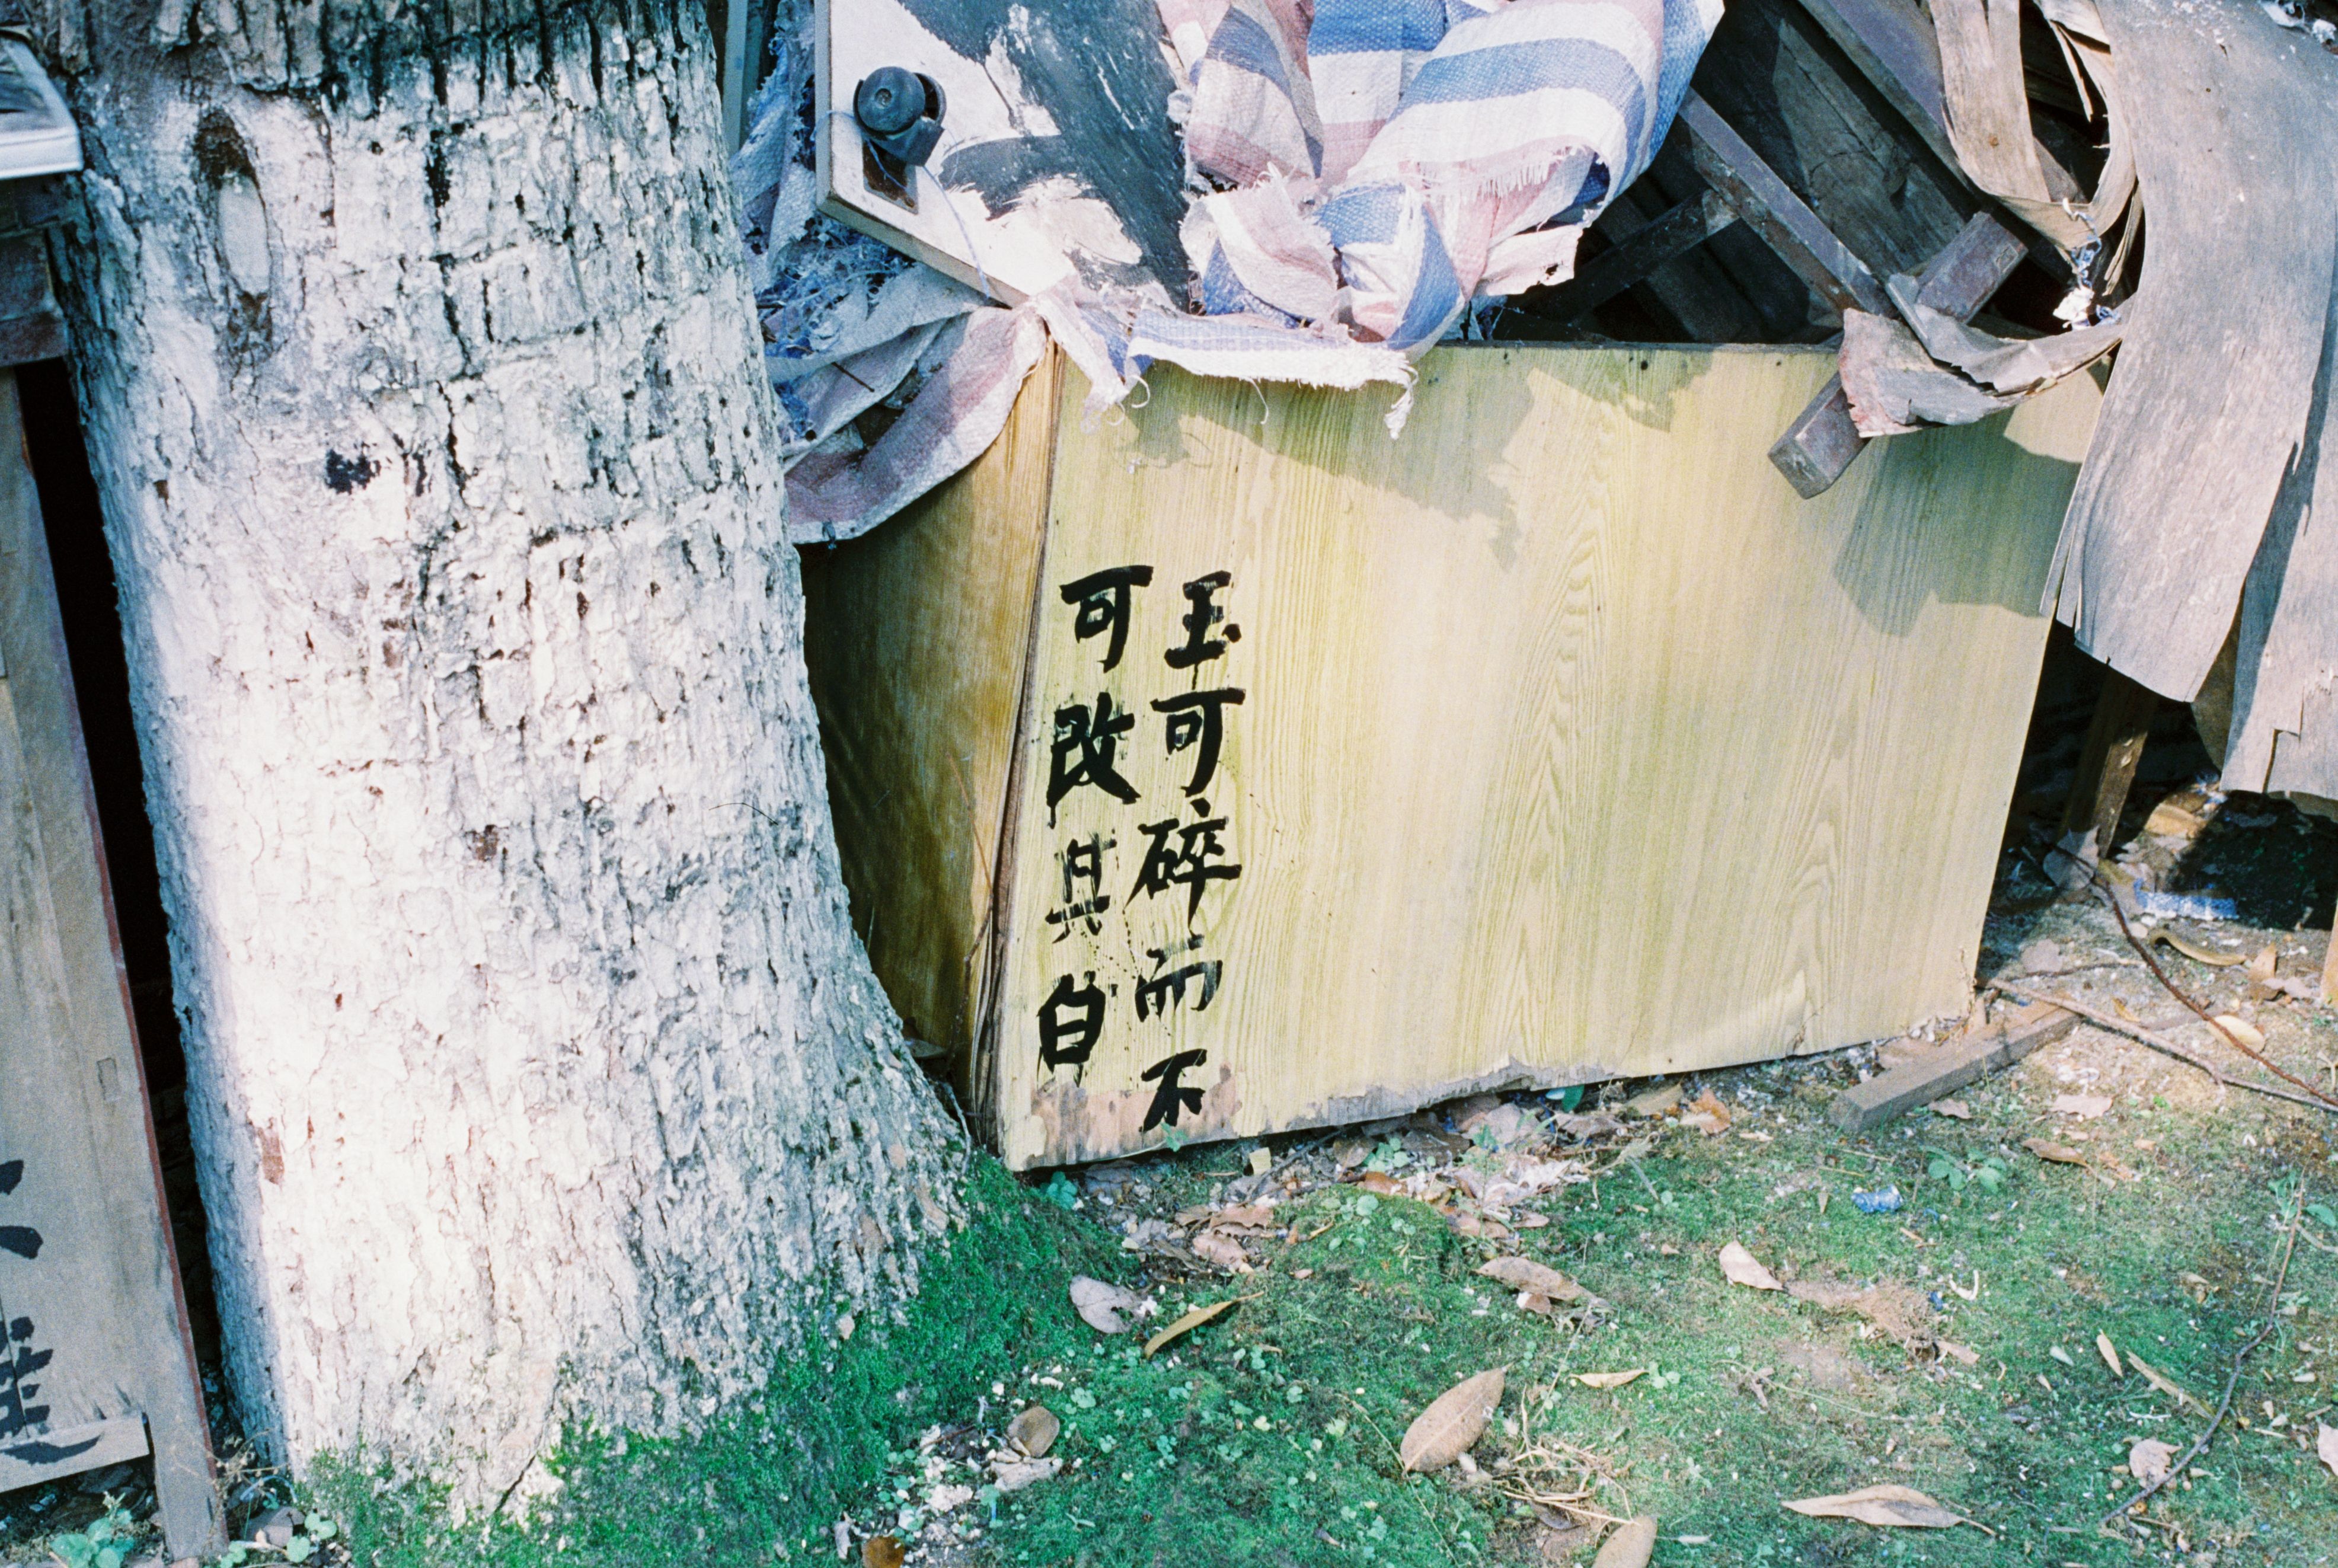 玉可碎而不
可改其白